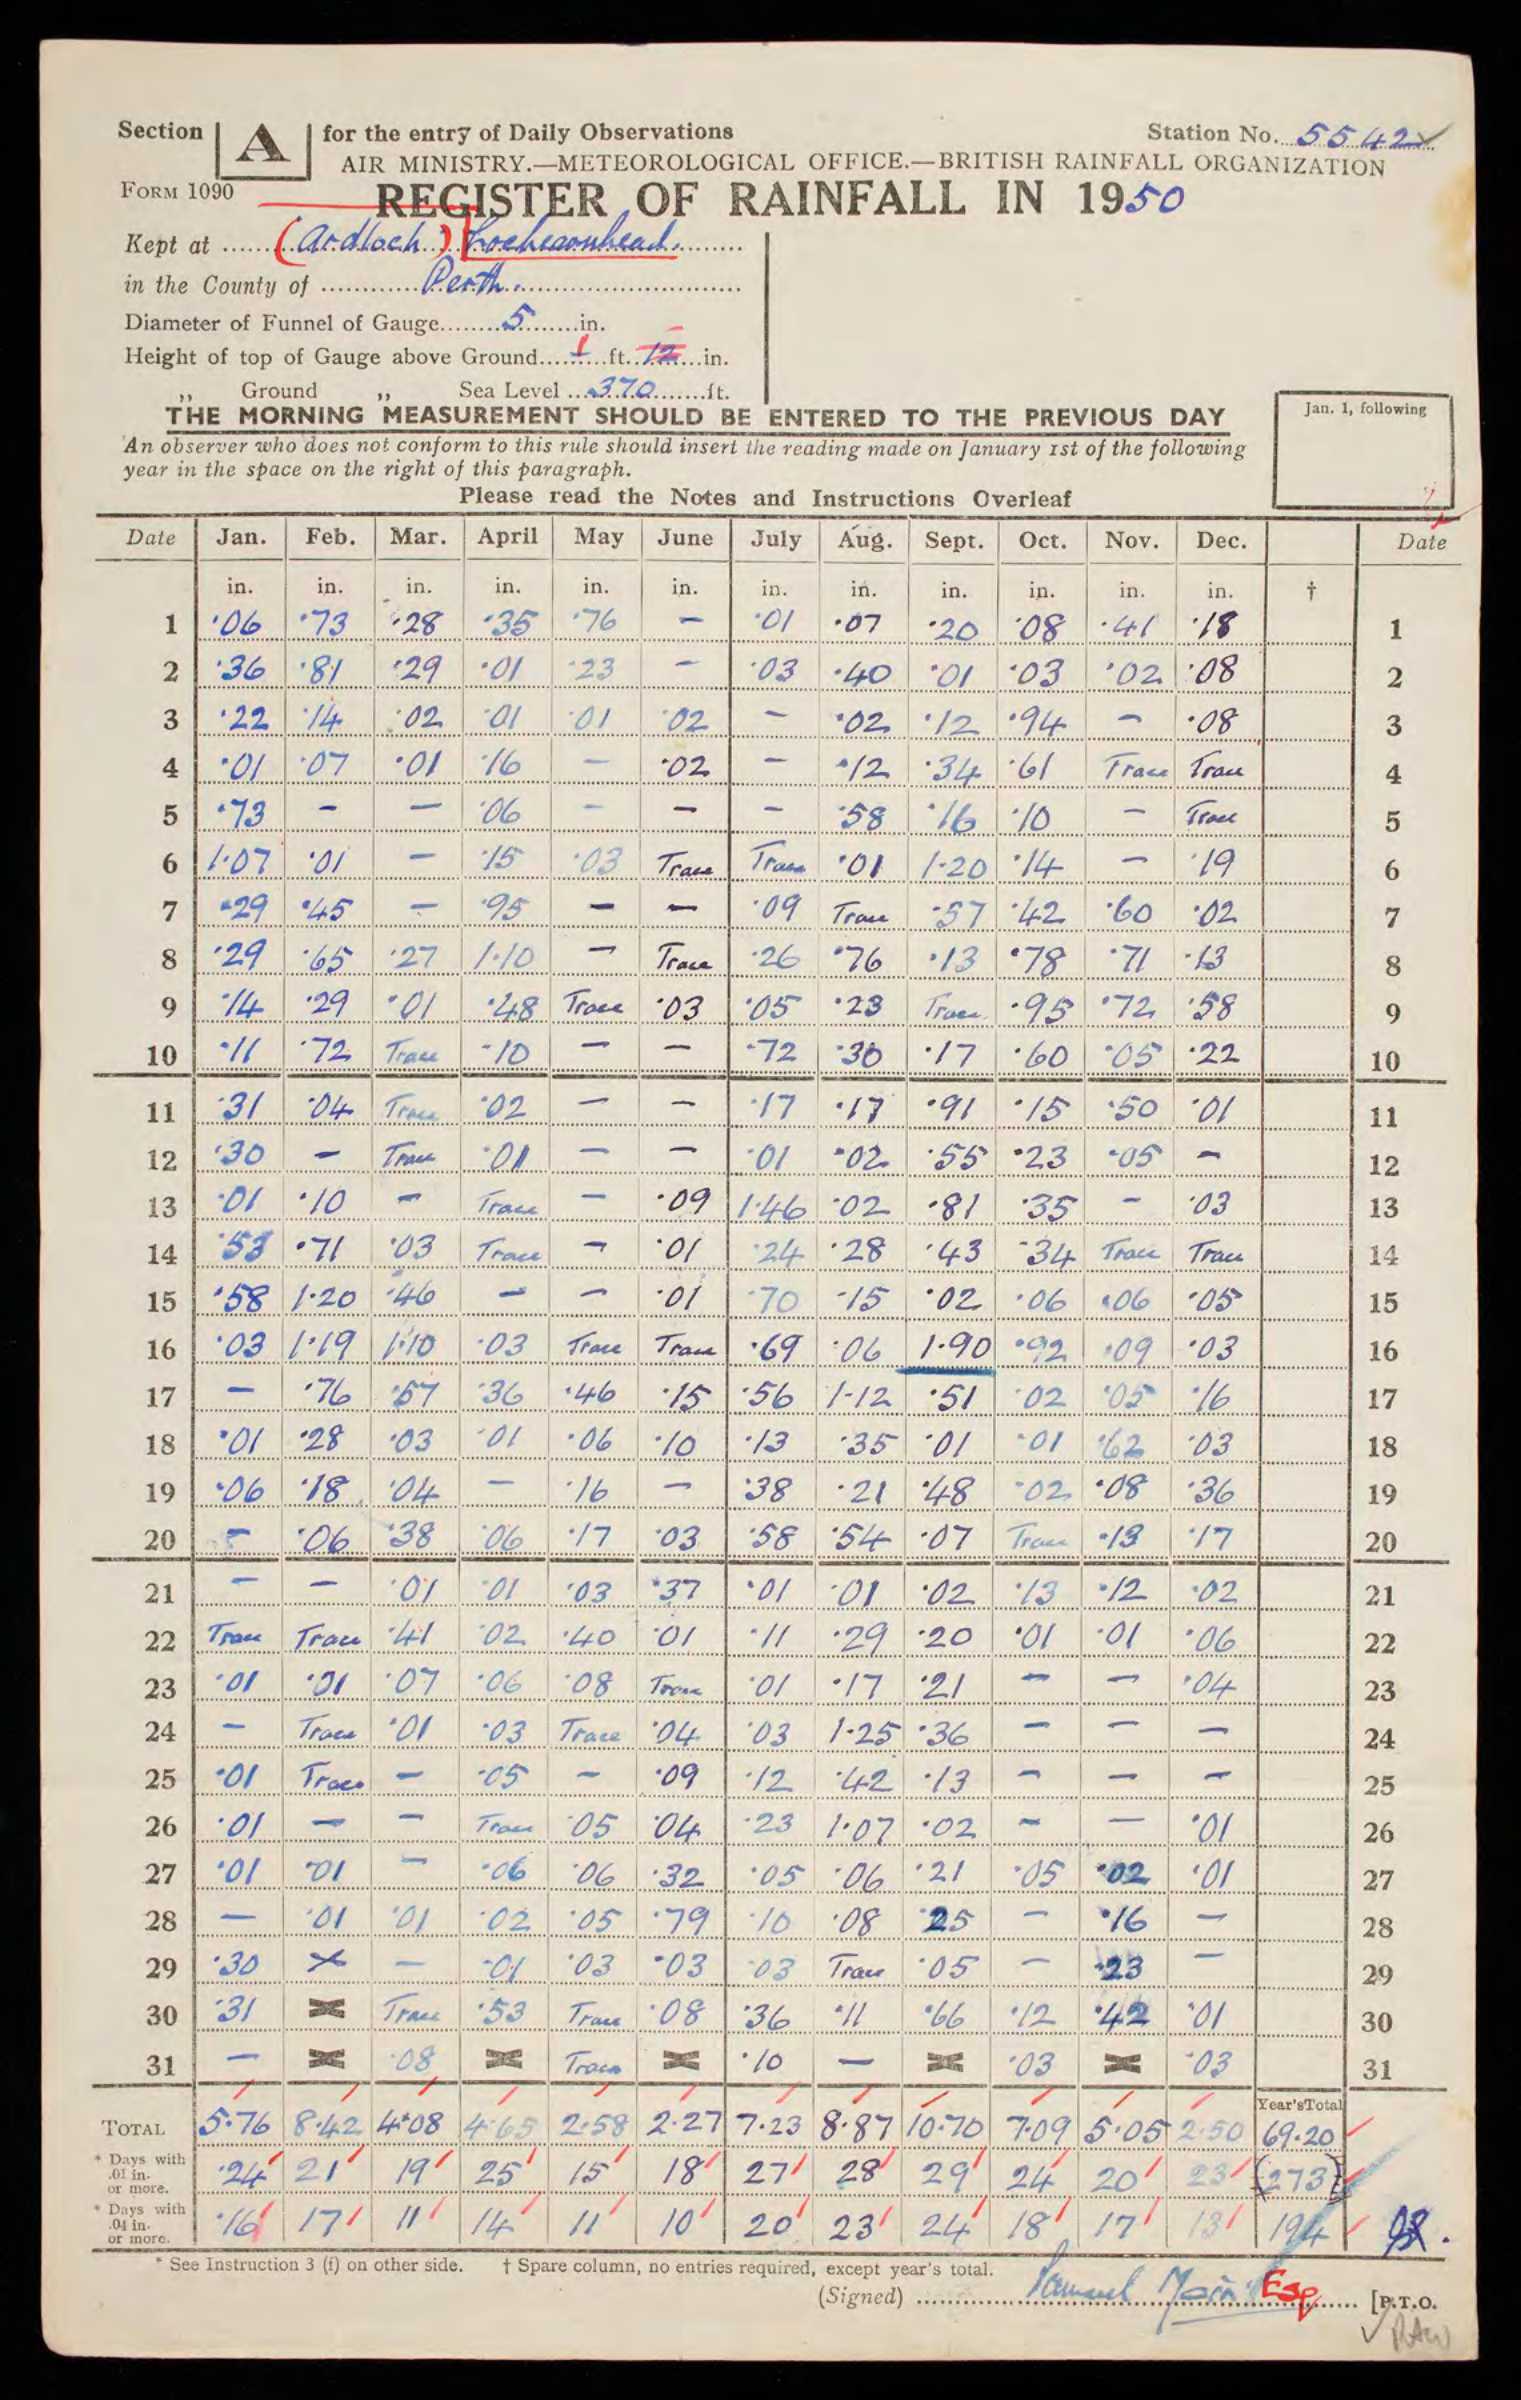 Section A for the entry of Daily Observations Station No. 5542
AIR MINISTRY.—METEOROLOGICAL OFFICE.—BRITISH RAINFALL ORGANIZATION
FORM 1090 REGISTER OF RAINFALL IN 1950
Kept at (Ardloch) Lochearnhead.
in the County of Perth.
Diameter of Funnel of Gauge 5 in.
Height of top of Gauge above Ground 1 ft. 12 in.
,, Ground ,, Sea Level 370 ft.
THE MORNING MEASUREMENT SHOULD BE ENTERED TO THE PREVIOUS DAY
Jan. 1, following
An observer who does not conform to this rule should insert the reading made on January 1st of the following
year in the space on the right of this paragraph.
Please read the Notes and Instructions Overleaf
Date Jan. Feb. Mar. April May June July Aug. Sept. Oct. Nov. Dec. Date
in. in. in. in. in. in. in. in. in. in. in. in. †
1 ·06 ·73 ·28 ·35 ·76 - ·01 ·07 ·20 ·08 ·41 ·18 1
2 ·36 ·81 ·29 ·01 ·23 - ·03 ·40 ·01 ·03 ·02 ·08 2
3 ·22 ·14 ·02 ·01 ·01 ·02 - ·02 ·12 ·94 - ·08 3
4 ·01 ·07 ·01 ·16 - ·02 - ·12 ·34 ·61 Trace Trace 4
5 ·73 - - ·06 - - - ·58 ·16 ·10 - Trace 5
6 1·07 ·01 - ·15 ·03 Trace Trace ·01 1·20 ·14 - ·19 6
7 ·29 ·45 - ·95 - - ·09 Trace ·57 ·42 ·60 ·02 7
8 ·29 ·65 ·27 1·10 - Trace ·26 ·76 ·13 ·78 ·71 ·13 8
9 ·14 ·29 ·01 ·48 Trace ·03 ·05 ·23 Trace ·95 ·72 ·58 9
10 ·11 ·72 Trace ·10 - - ·72 ·30 ·17 ·60 ·05 ·22 10
11 ·31 ·04 Trace ·02 - - ·17 ·17 ·91 ·15 ·50 ·01 11
12 ·30 - Trace ·01 - - ·01 ·02 ·55 ·23 ·05 - 12
13 ·01 ·10 - Trace - ·09 1·46 ·02 ·81 ·35 - ·03 13
14 ·53 ·71 ·03 Trace - ·01 ·24 ·28 ·43 ·34 Trace Trace 14
15 ·58 1·20 ·46 - - ·01 ·70 ·15 ·02 ·06 ·06 ·05 15
16 ·03 1·19 1·10 ·03 Trace Trace ·69 ·06 1·90 ·92 ·09 ·03 16
17 - ·76 ·57 ·36 ·46 ·15 ·56 1·12 ·51 ·02 ·05 ·16 17
18 ·01 ·28 ·03 ·01 ·06 ·10 ·13 ·35 ·01 ·01 ·62 ·03 18
19 ·06 ·18 ·04 - ·16 - ·38 ·21 ·48 ·02 ·08 ·36 19
20 - ·06 ·38 ·06 ·17 ·03 ·58 ·54 ·07 Trace ·13 ·17 20
21 - - ·01 ·01 ·03 ·37 ·01 ·01 ·02 ·13 ·12 ·02 21
22 Trace Trace ·41 ·02 ·40 ·01 ·11 ·29 ·20 ·01 ·01 ·06 22
23 ·01 ·01 ·07 ·06 ·08 Trace ·01 ·17 ·21 - - ·04 23
24 - Trace ·01 ·03 Trace ·04 ·03 1·25 ·36 - - - 24
25 ·01 Trace - ·05 - ·09 ·12 ·42 ·13 - - - 25
26 ·01 - - Trace ·05 ·04 ·23 1·07 ·02 - - ·01 26
27 ·01 ·01 - ·06 ·06 ·32 ·05 ·06 ·21 ·05 ·02 ·01 27
28 - ·01 ·01 ·02 ·05 ·79 ·10 ·08 ·25 - ·16 - 28
29 ·30 × - ·01 ·03 ·03 ·03 Trace ·05 - ·23 - 29
30 ·31 × Trace ·53 Trace ·08 ·36 ·11 ·66 ·12 ·42 ·01 30
31 - × ·08 × Trace × ·10 - × ·03 × ·03 31
Year's Total
TOTAL 5·76 8·42 4·08 4·65 2·58 2·27 7·23 8·87 10·70 7·09 5·05 2·50 69·20
* Days with .01 in. or more. 24 21 19 25 15 18 27 28 29 24 20 23 (273)
* Days with .04 in. or more. 16 17 11 14 11 10 20 23 24 18 17 13 194
* See Instruction 3 (f) on other side. † Spare column, no entries required, except year's total.
(Signed) Samuel Esq [P.T.O.